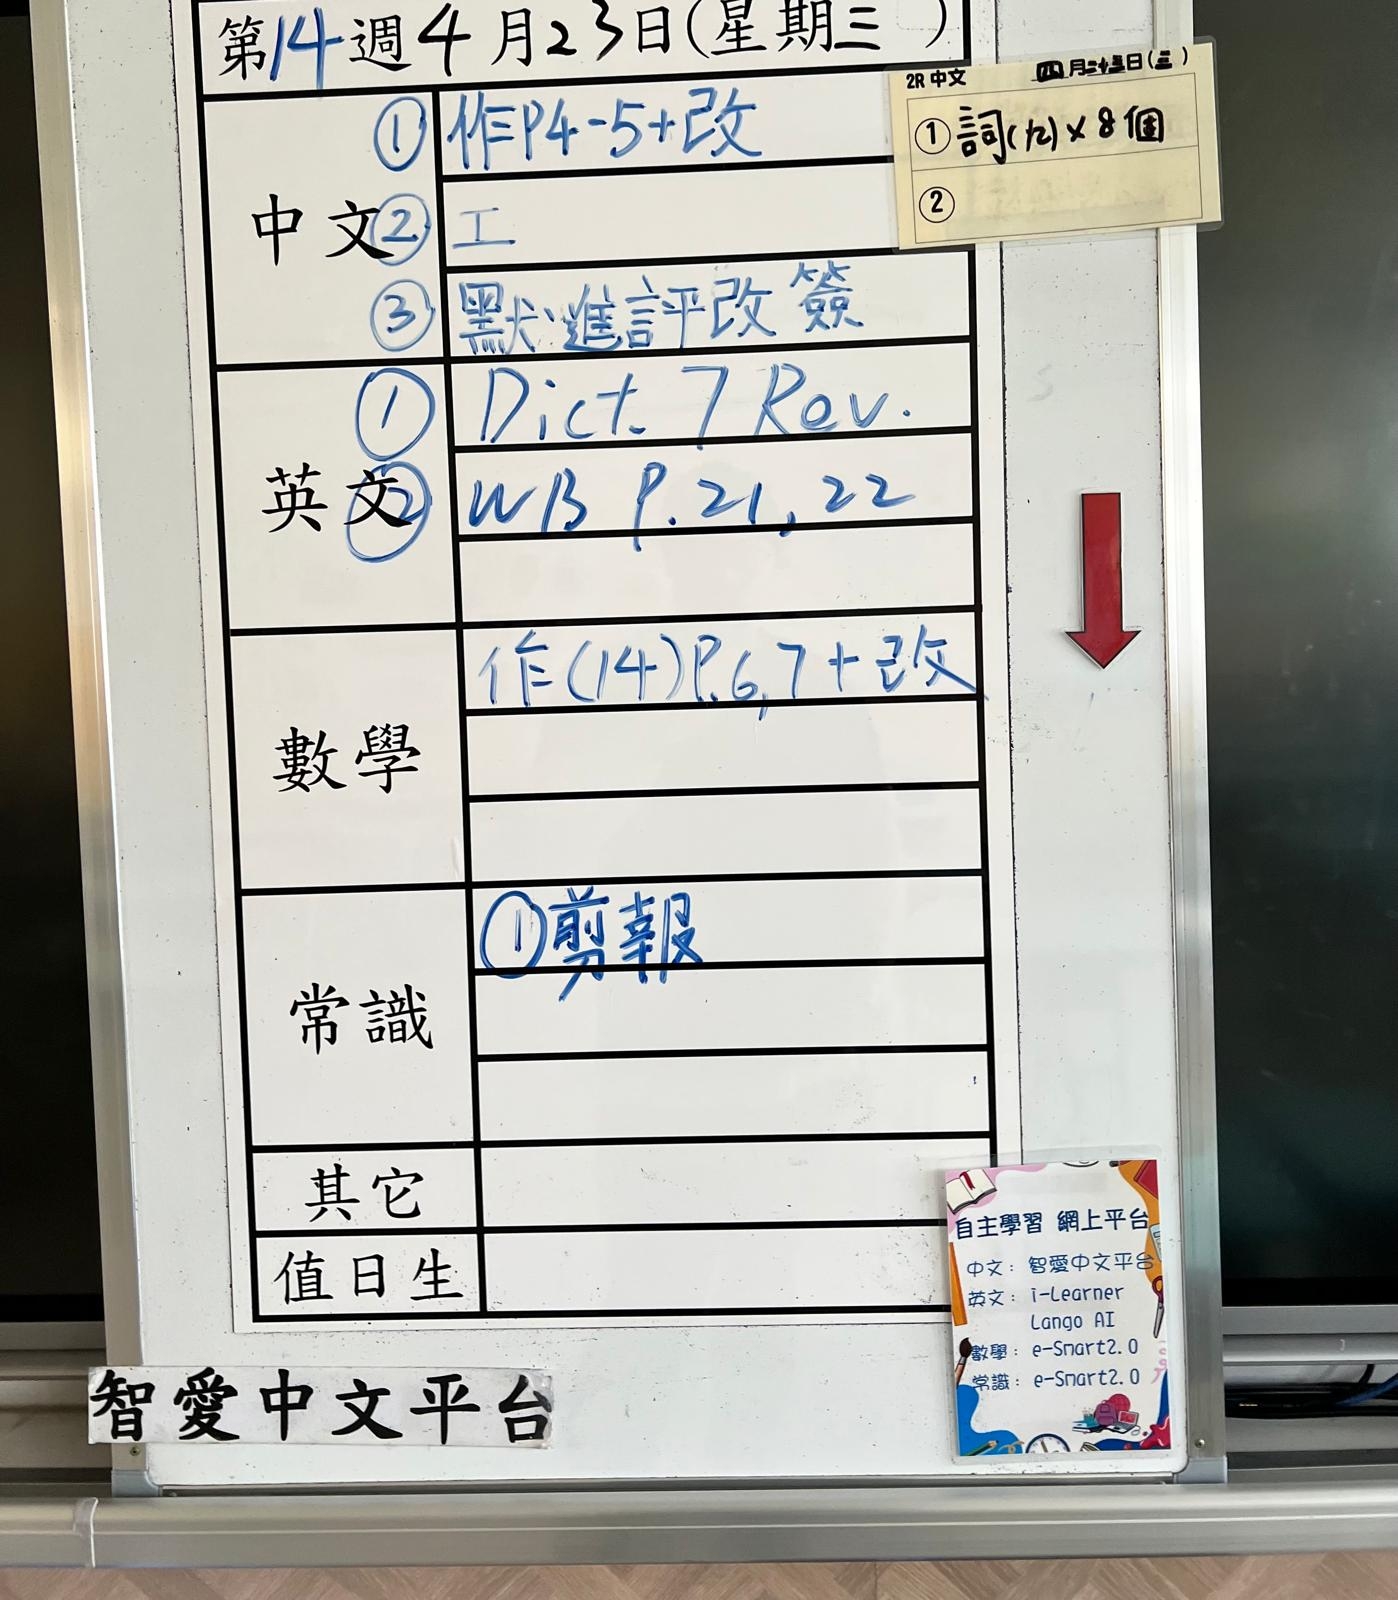 第14週4月23日(星期三)
中文
① 作P4-5+改
② 工
③ 默進評改簽
2R 中文 四月二十三日(三)
① 詞(九)×8個
②
英文
① Dict. 7 Rev.
② WB P.21, 22
數學
作(14)P.6,7+改
常識
①剪報
其它
值日生
自主學習 網上平台
中文: 智愛中文平台
英文: i-Learner
Lango AI
數學: e-Smart2.0
常識: e-Smart2.0
智愛中文平台